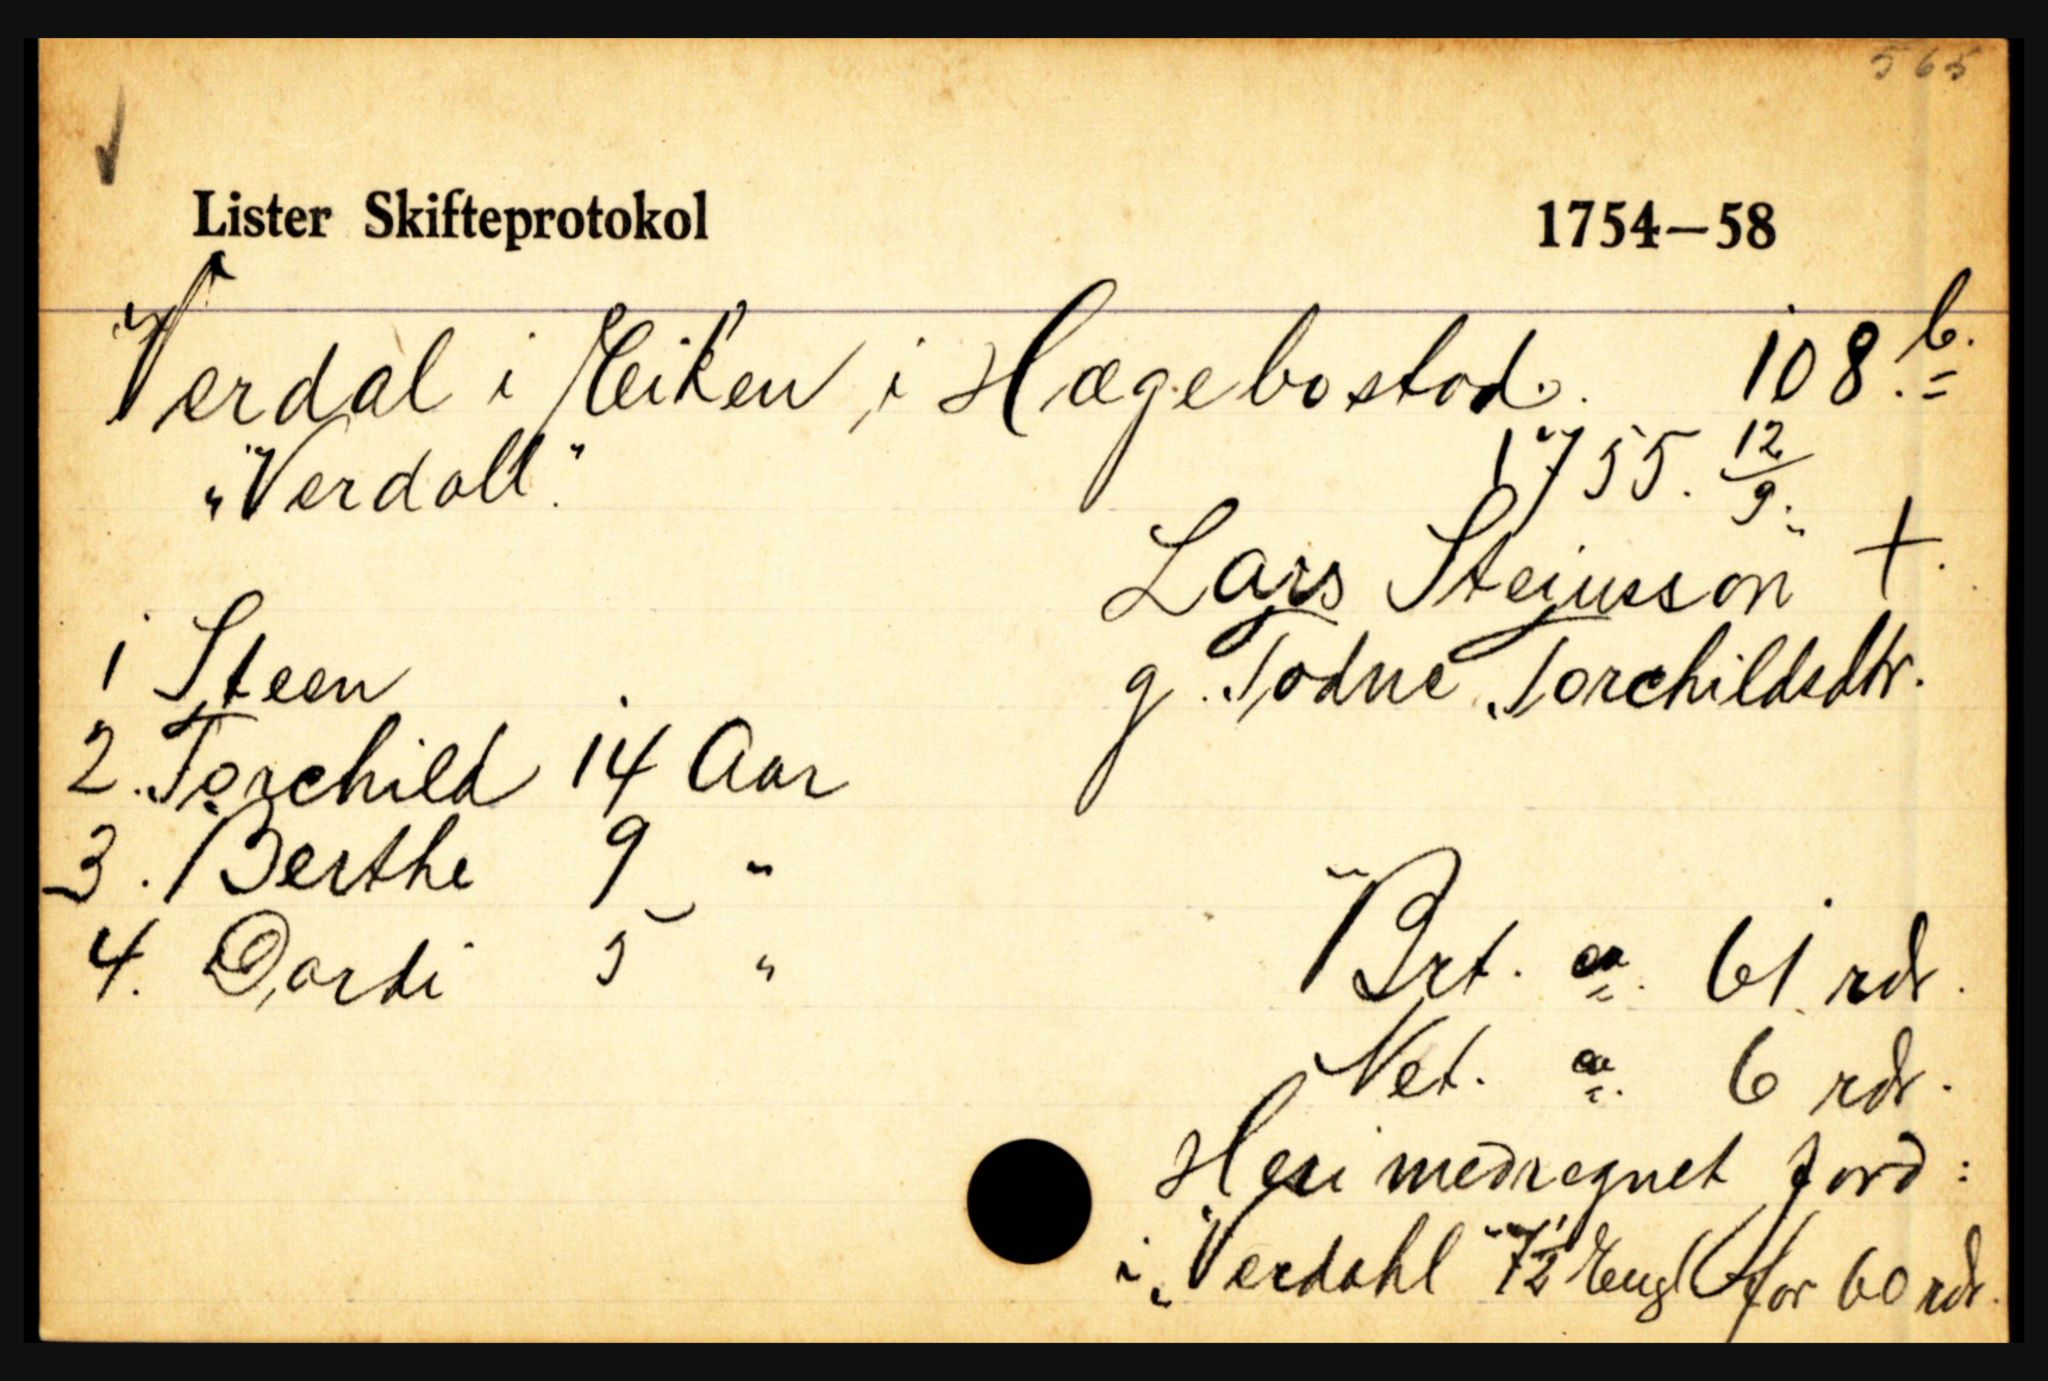 565
Lister Skifteprotokol 1754—58
Verdal i Eiken i Hægebostad. 108.b.
"Verdall." 1755. 12/9.
Lars Steinsson +.
g. Todne Torchildsdtr.
1 Steen
2. Torchild 14 Aar
3. Berthe 9 "
4. Dorti 5 "
Brt. ca. 61 rdr.
Net. ca. 6 rdr.
Heri medregnet Jord:
i Verdahl 7½ Eng for 60 rdr.